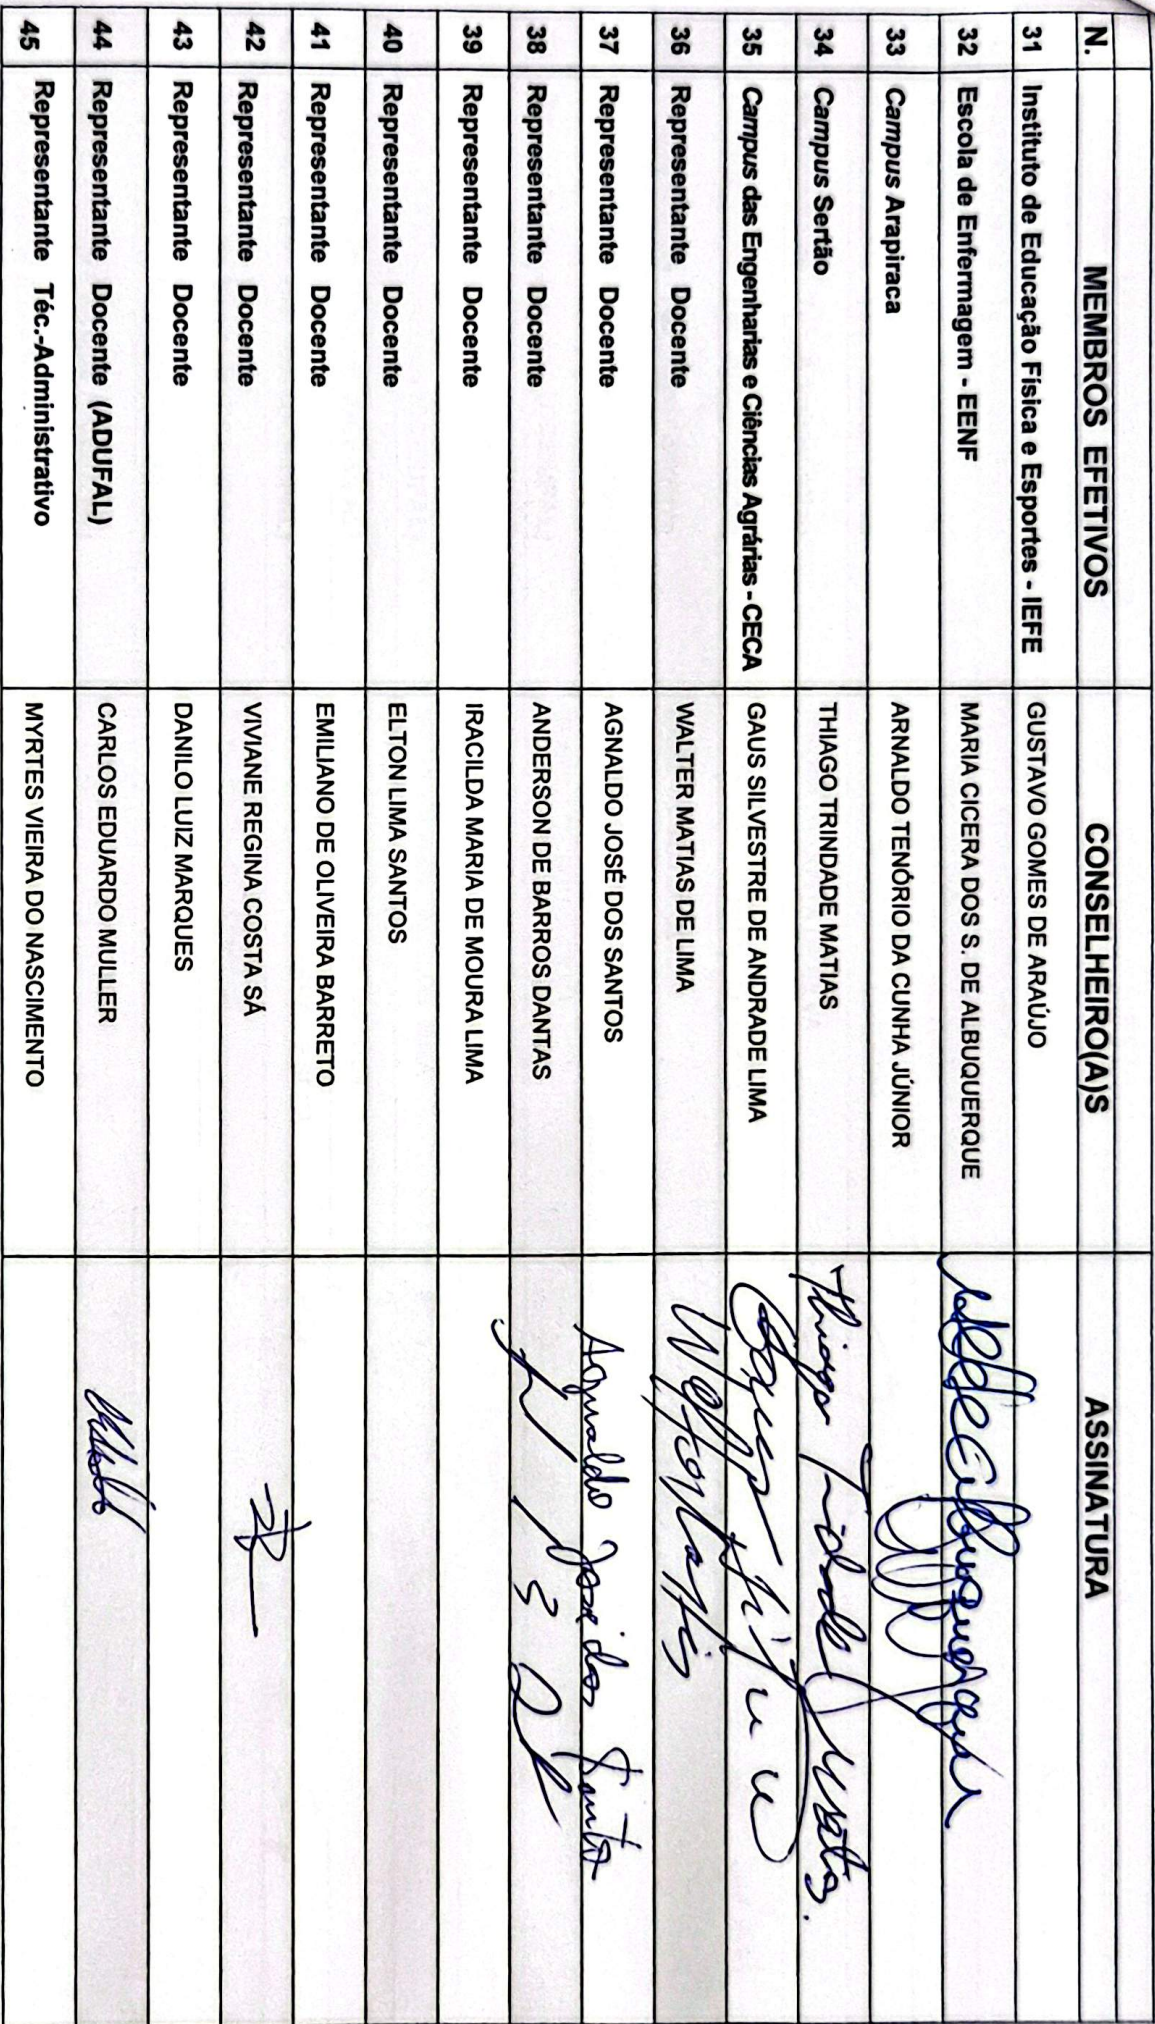 N. MEMBROS EFETIVOS CONSELHEIRO(A)S ASSINATURA
31 Instituto de Educação Física e Esportes - IEFE GUSTAVO GOMES DE ARAÚJO
32 Escola de Enfermagem - EENF MARIA CICERA DOS S. DE ALBUQUERQUE
33 Campus Arapiraca ARNALDO TENÓRIO DA CUNHA JÚNIOR
34 Campus Sertão THIAGO TRINDADE MATIAS Thiago Trindade Matias.
35 Campus das Engenharias e Ciências Agrárias - CECA GAUS SILVESTRE DE ANDRADE LIMA
36 Representante Docente WALTER MATIAS DE LIMA
37 Representante Docente AGNALDO JOSÉ DOS SANTOS Agnaldo José dos Santos
38 Representante Docente ANDERSON DE BARROS DANTAS
39 Representante Docente IRACILDA MARIA DE MOURA LIMA
40 Representante Docente ELTON LIMA SANTOS
41 Representante Docente EMILIANO DE OLIVEIRA BARRETO
42 Representante Docente VIVIANE REGINA COSTA SÁ
43 Representante Docente DANILO LUIZ MARQUES
44 Representante Docente (ADUFAL) CARLOS EDUARDO MULLER
45 Representante Téc.-Administrativo MYRTES VIEIRA DO NASCIMENTO